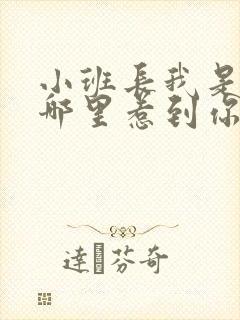 小班长我是
哪里惹到你
達芬奇